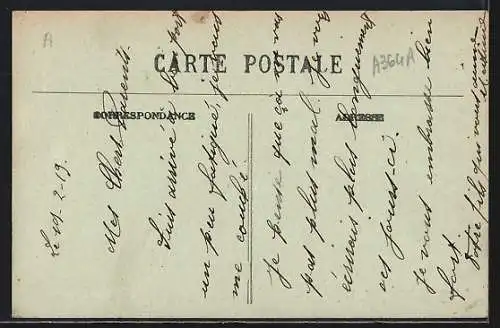 A
CARTE POSTALE
A364A
CORRESPONDANCE
ADRESSE
Le 2-19.
Mes Chers Parents.
Suis arrivé à bon port
un peu fatigué, je viens
me coucher.
Je pense que ça va
pas plus mal. Je vous
écrirais plus longuement
ces jours-ci.
Je vous embrasse bien
fort.
Votre fils qui vous aime